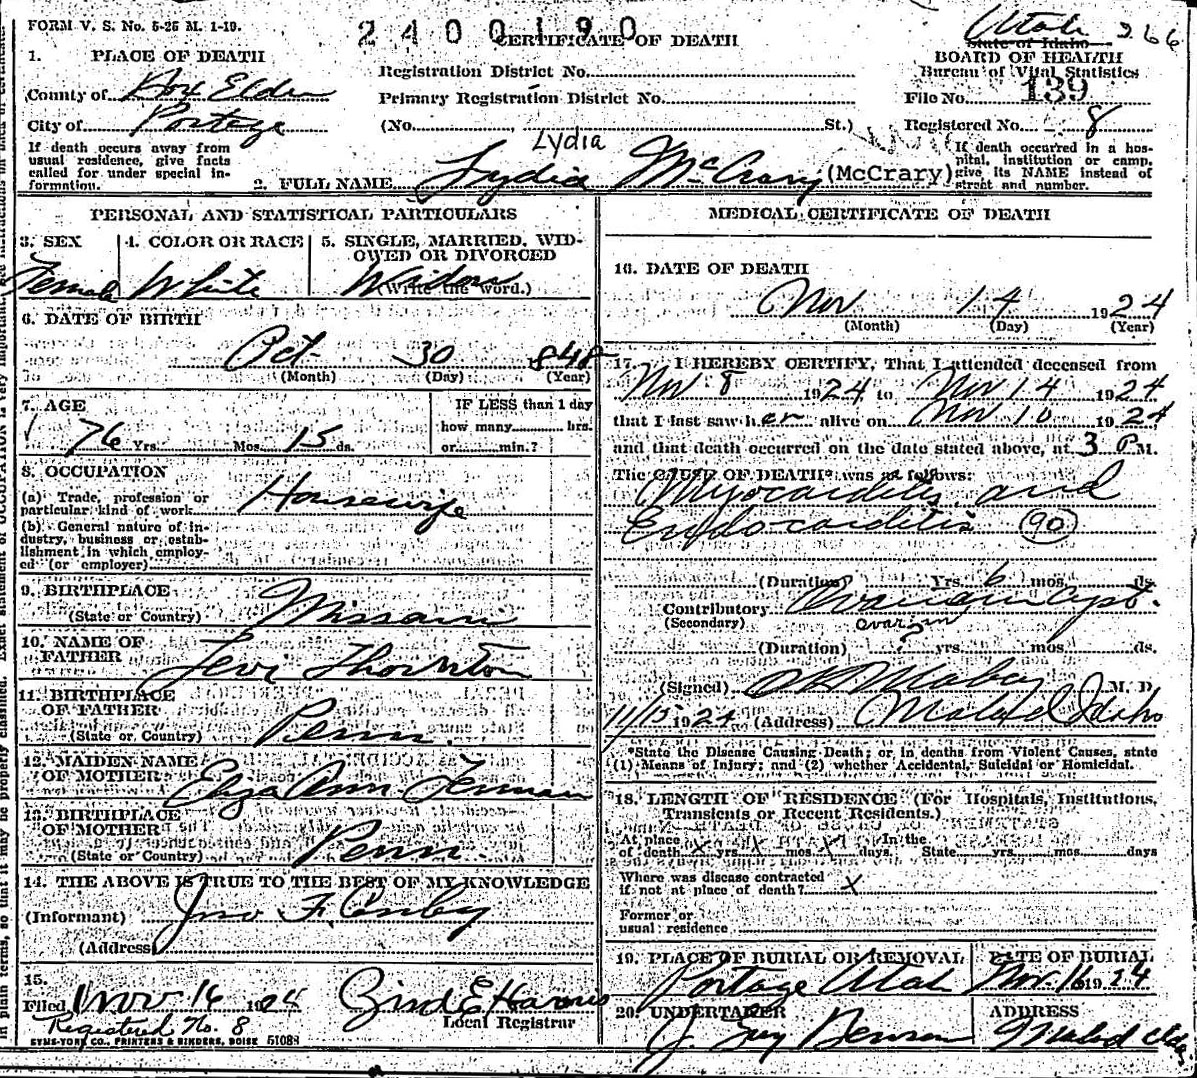 FORM V. S. No. 5-25 M. 1-19.
2400190
CERTIFICATE OF DEATH
Utah 266
State of Idaho
BOARD OF HEALTH
Bureau of Vital Statistics
File No. 139
Registered No. 8
1. PLACE OF DEATH
County of Box Elder
City of Portage
If death occurs away from
usual residence, give facts
called for under special in-
formation.
Registration District No.
Primary Registration District No.
(No. St.)
Lydia
2. FULL NAME Lydia McCrary (McCrary)
If death occurred in a hos-
pital, institution or camp,
give its NAME instead of
street and number.
PERSONAL AND STATISTICAL PARTICULARS
3. SEX
Female
4. COLOR OR RACE
White
5. SINGLE, MARRIED, WID-
OWED OR DIVORCED
Widow
(Write the word.)
6. DATE OF BIRTH
Oct 30 848
(Month) (Day) (Year)
7. AGE
76 Yrs. Mos. 15 ds.
IF LESS than 1 day
how many hrs.
or min.?
8. OCCUPATION
(a) Trade, profession or
particular kind of work Housewife
(b) General nature of in-
dustry, business or estab-
lishment in which employ-
ed (or employer)
9. BIRTHPLACE
(State or Country) Missouri
10. NAME OF
FATHER Levi Thornton
11. BIRTHPLACE
OF FATHER
(State or Country) Penn.
12. MAIDEN NAME
OF MOTHER Eliza Ann Lenman
13. BIRTHPLACE
OF MOTHER
(State or Country) Penn.
14. THE ABOVE IS TRUE TO THE BEST OF MY KNOWLEDGE
(Informant) Jno F.
(Address)
15.
Filed Nov 16 1924
Local Registrar
Registered No. 8
SYMS-YORK CO., PRINTERS & BINDERS, BOISE 51088
MEDICAL CERTIFICATE OF DEATH
16. DATE OF DEATH
Nov 14 1924
(Month) (Day) (Year)
17. I HEREBY CERTIFY, That I attended deceased from
Nov 8 1924 to Nov 14 1924
that I last saw her alive on Nov 10 1924
and that death occurred on the date stated above, at 3 P.M.
The CAUSE OF DEATH* was as follows:
Myocarditis and
Endocarditis (90)
(Duration) Yrs. 6 mos. ds.
Contributory Ovarian Cyst.
(Secondary) ovarian
(Duration) ? yrs. mos. ds.
(Signed) Mabey M. D.
11/15 1924 (Address) Malad Idaho
*State the Disease Causing Death; or in deaths from Violent Causes, state
(1) Means of Injury; and (2) whether Accidental, Suicidal or Homicidal.
18. LENGTH OF RESIDENCE (For Hospitals, Institutions,
Transients or Recent Residents.)
At place In the
of death X yrs. X mos. X days. State yrs. mos. days
Where was disease contracted
if not at place of death? X
Former or
usual residence
19. PLACE OF BURIAL OR REMOVAL
Portage Utah
DATE OF BURIAL
Nov. 16 1924
20. UNDERTAKER
J. Guy Benson
ADDRESS
Malad Ida.